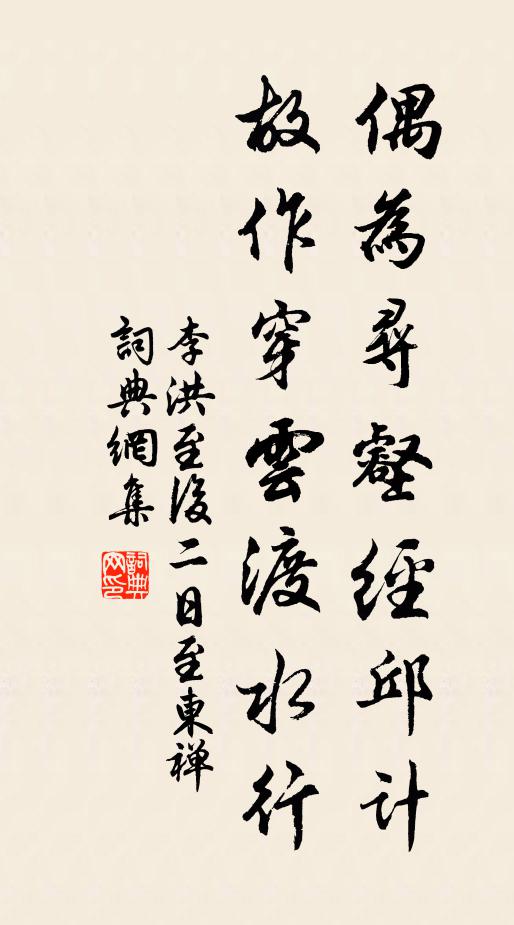 偶為尋壑經邱計
故作穿雲渡水行
李洪至後二日至東禅
詞典網集
詞典網印